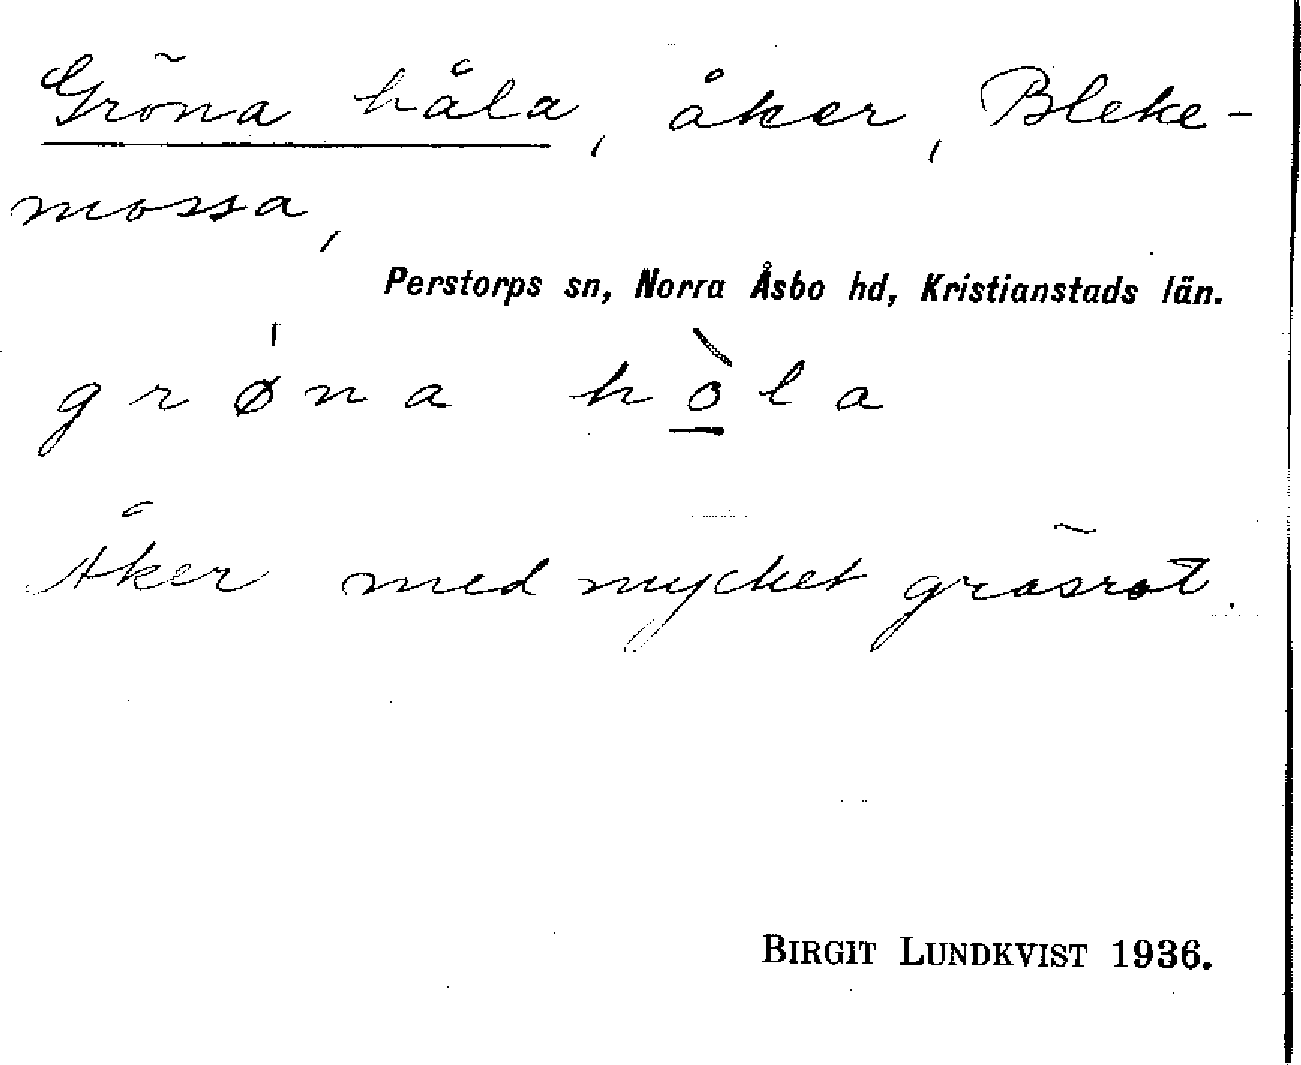 Gröna håla, åker, Bleke-
mossa,
Perstorps sn, Norra Åsbo hd, Kristianstads län.
grø̍na hò̲la
Åker med mycket gräsrot.
BIRGIT LUNDKVIST 1936.